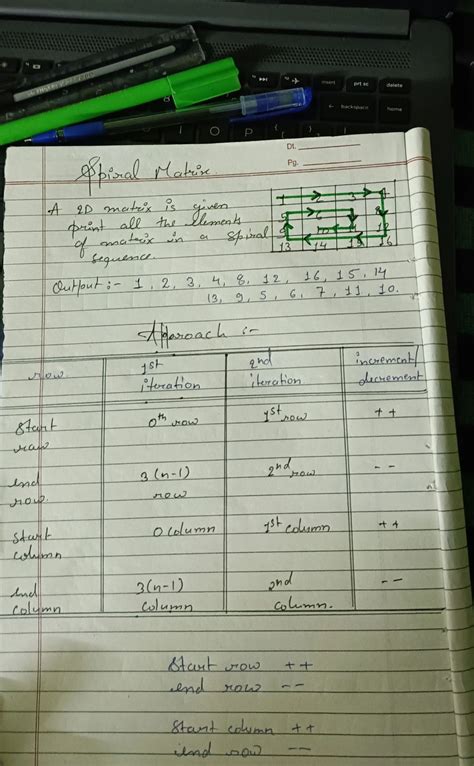 insert prt sc delete
backspace home
I O P
Dt.
Pg.
Spiral Matrix.
A 2D matrix is given
print all the elements
of matrix in a spiral
sequence.
1 2 3 4
5 6 7 8
9 10 11 12
13 14 15 16
Output :- 1, 2, 3, 4, 8, 12, 16, 15, 14
13, 9, 5, 6, 7, 11, 10.
Approach :-
row 1st iteration 2nd iteration increment/ decrement
Start row 0th row 1st row ++
end row. 3(n-1) row 2nd row --
Start column 0 column 1st column ++
end column 3(n-1) column 2nd column. --
Start row ++
end row --
Start column ++
end row --